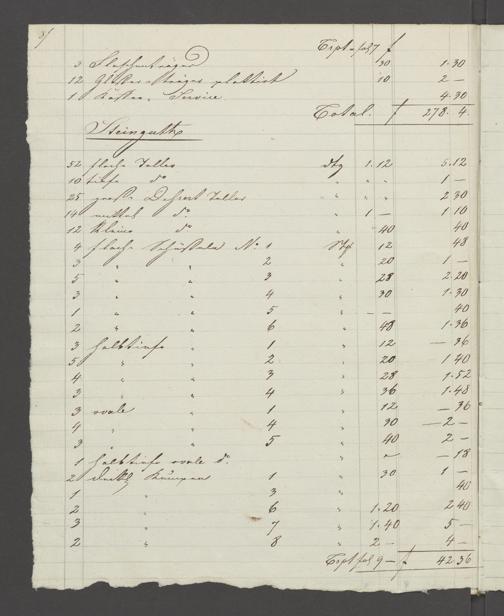 8/
Tspt. fol 7 f
3 Flaschenträger 30 1.30
12 Gläser-träger plattirt 10 2 —
1 Kaffee-Service 4.30
Total. f 278. 4.
Steinguth
52 flache Teller dtzg 1.12 5.12
10 tiefe do " " " 1 —
25 große Dessert Teller " " " 2 30
14 mittel do. " 1 — 1 10
12 kleine do " 40 40
4 flache Schüsseln No. 1 Stk 12 48
3 " " 2 " 20 1 —
5 " " 3 " 28 2.20
3 " " 4 " 30 1.30
1 " " 5 " — — 40
2 " " 6 " 48 1.36
3 halbtiefe 1 " 12 — 36
5 " 2 " 20 1 40
4 " 3 " 28 1.52
3 " 4 " 36 1.48
3 ovale 1 " 12 — 36
4 " 4 " 30 — 2 —
3 " 5 " 40 2 —
1 halbtiefe ovale do. " " — 18
2 1 " 30 1 —
1 " 3 " 40
2 " 6 " 1.20 2 40
3 " 7 " 1.40 5 —
2 " 8 " 2 — 4 —
Tspt fol 9 — f 42.36